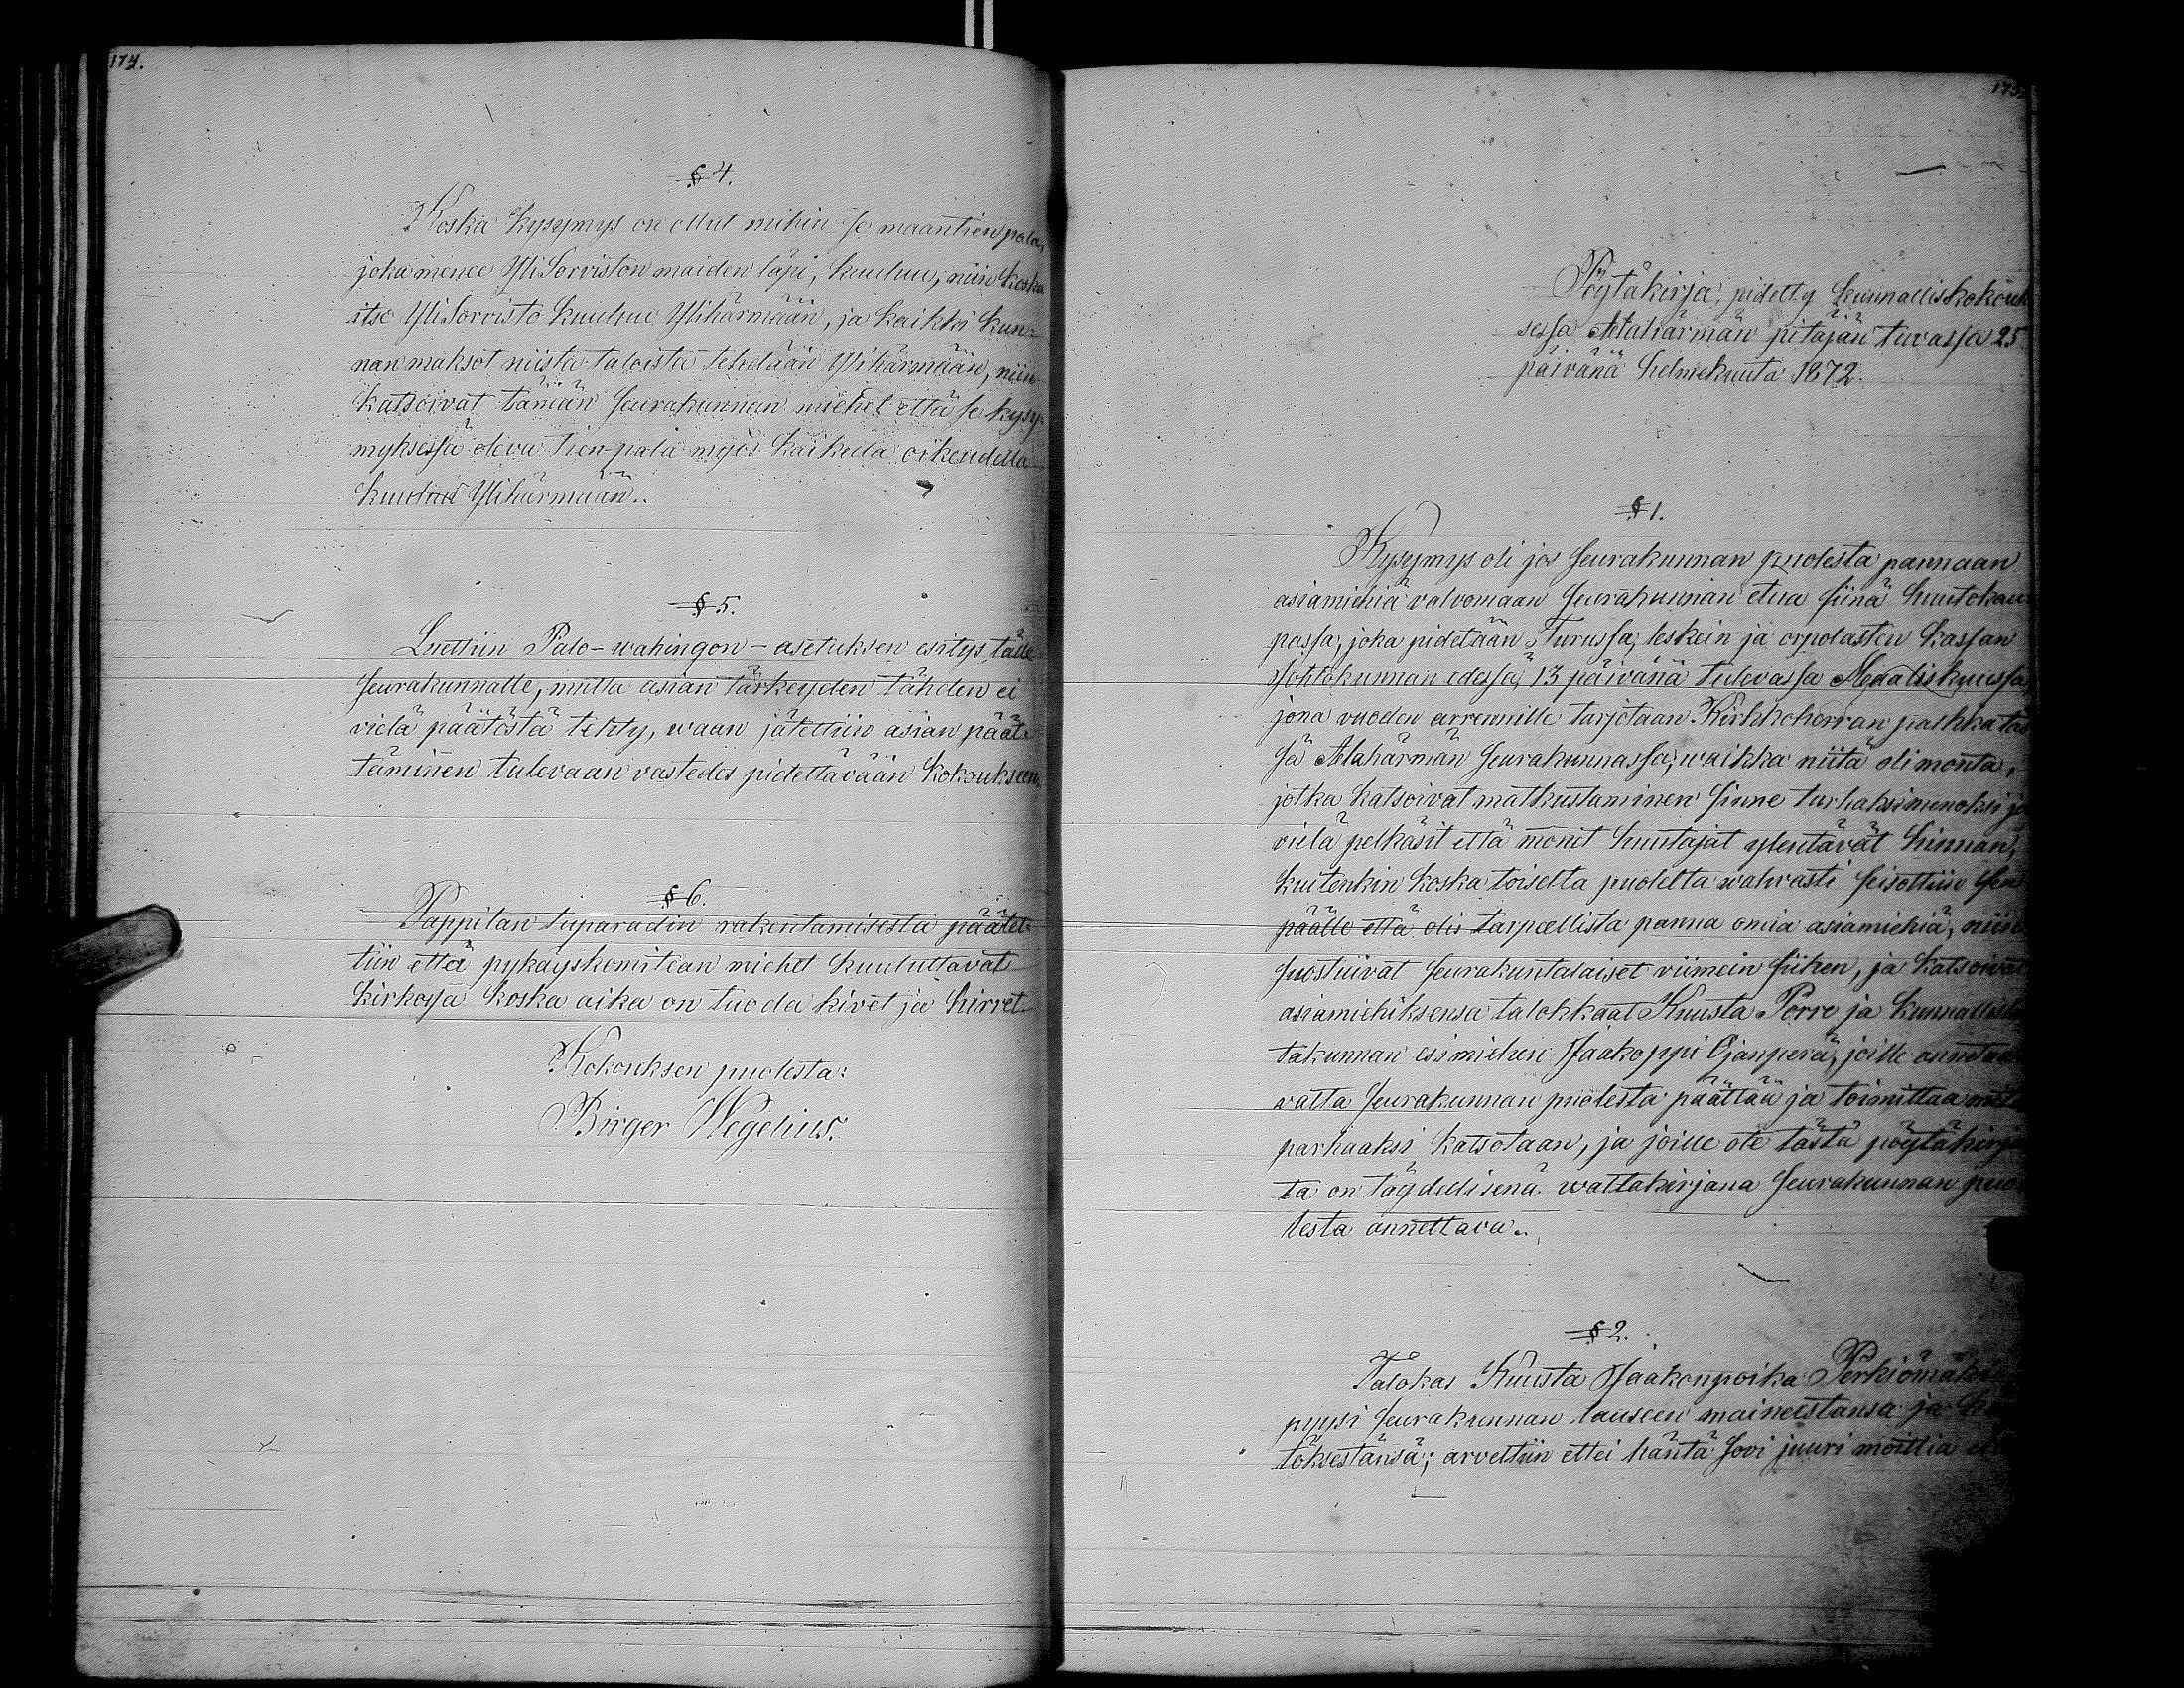 174.
§ 4.
Koska kysymys on ollut mihin se maantien pala,
joka menee YliSorviston maiden läpi, kuuluu, niin koska
itse YliSorvisto kuuluu Ylihärmään, ja kaikki kun-
nan maksot niistä taloista tehdään Ylihärmään, niin
katsoivat tämän seurakunnan miehet että se kysy-
myksessä oleva tien-pala myös kaikella oikeudella
kuuluu Ylihärmään.
§ 5.
Luettiin Palo-wahingon-asetuksen esitys tälle
seurakunnalle, mutta asian tärkeyden tähden ei
vielä päätöstä tehty, waan jätettiin asian päät-
täminen tulevaan vastedes pidettävään kokoukseen.
§ 6.
Pappilan tuparadin rakentamisesta päätet-
tiin että pykäyskomitean miehet kuuluttavat
kirkossa koska aika on tuoda kivet ja hirret.
Kokouksen puolesta:
Birger Wegelius.
175.
Pöytäkirja, pidetty kunnalliskokouk
sessa Alahärmän pitäjän tuvassa 25
päivänä helmekuuta 1872.
§ 1.
Kysymys oli jos seurakunnan puolesta pannaan
asiamiehiä valvomaan seurakunnan etua siinä huutokau
passa, joka pidetään Turussa, leskein ja orpolasten kassan
johtokunnan edessä, 13 päivänä tulevassa Maaliskuussa,
jona vuoden arrennille tarjotaan Kirkkoherran palkka täs
sä Alahärmän seurakunnassa; waikka niitä oli monta,
jotka katsoivat matkustaminen sinne turhaksi menoksi ja
vielä pelkäsit että monet huutajat ylentävät hinnan,
kuitenkin koska toiselta puolelta wahvasti seisottiin sen
päälle että olis tarpeellista panna omia asiamiehiä, niin
suostuivat seurakuntalaiset viimein siihen, ja katsoivat
asiamiehiksensa talokkaat Kuusta Porre ja kunnallislau
takunnan esimiehen Jaakoppi Ojanperä, joille annetaan
valta seurakunnan puolesta päättää ja toimittaa mitä
parhaaksi katsotaan, ja joille ote tästä pöytäkirjas
ta on täydellisenä waltakirjana seurakunnan puo
lesta annettava.
§ 2.
Talokas Kuusta Jaakonpoika Perkiömäki
pyysi seurakunnan lauseen maineestansa ja
töksestänsä; arveltiin ettei häntä sovi juuri moittia